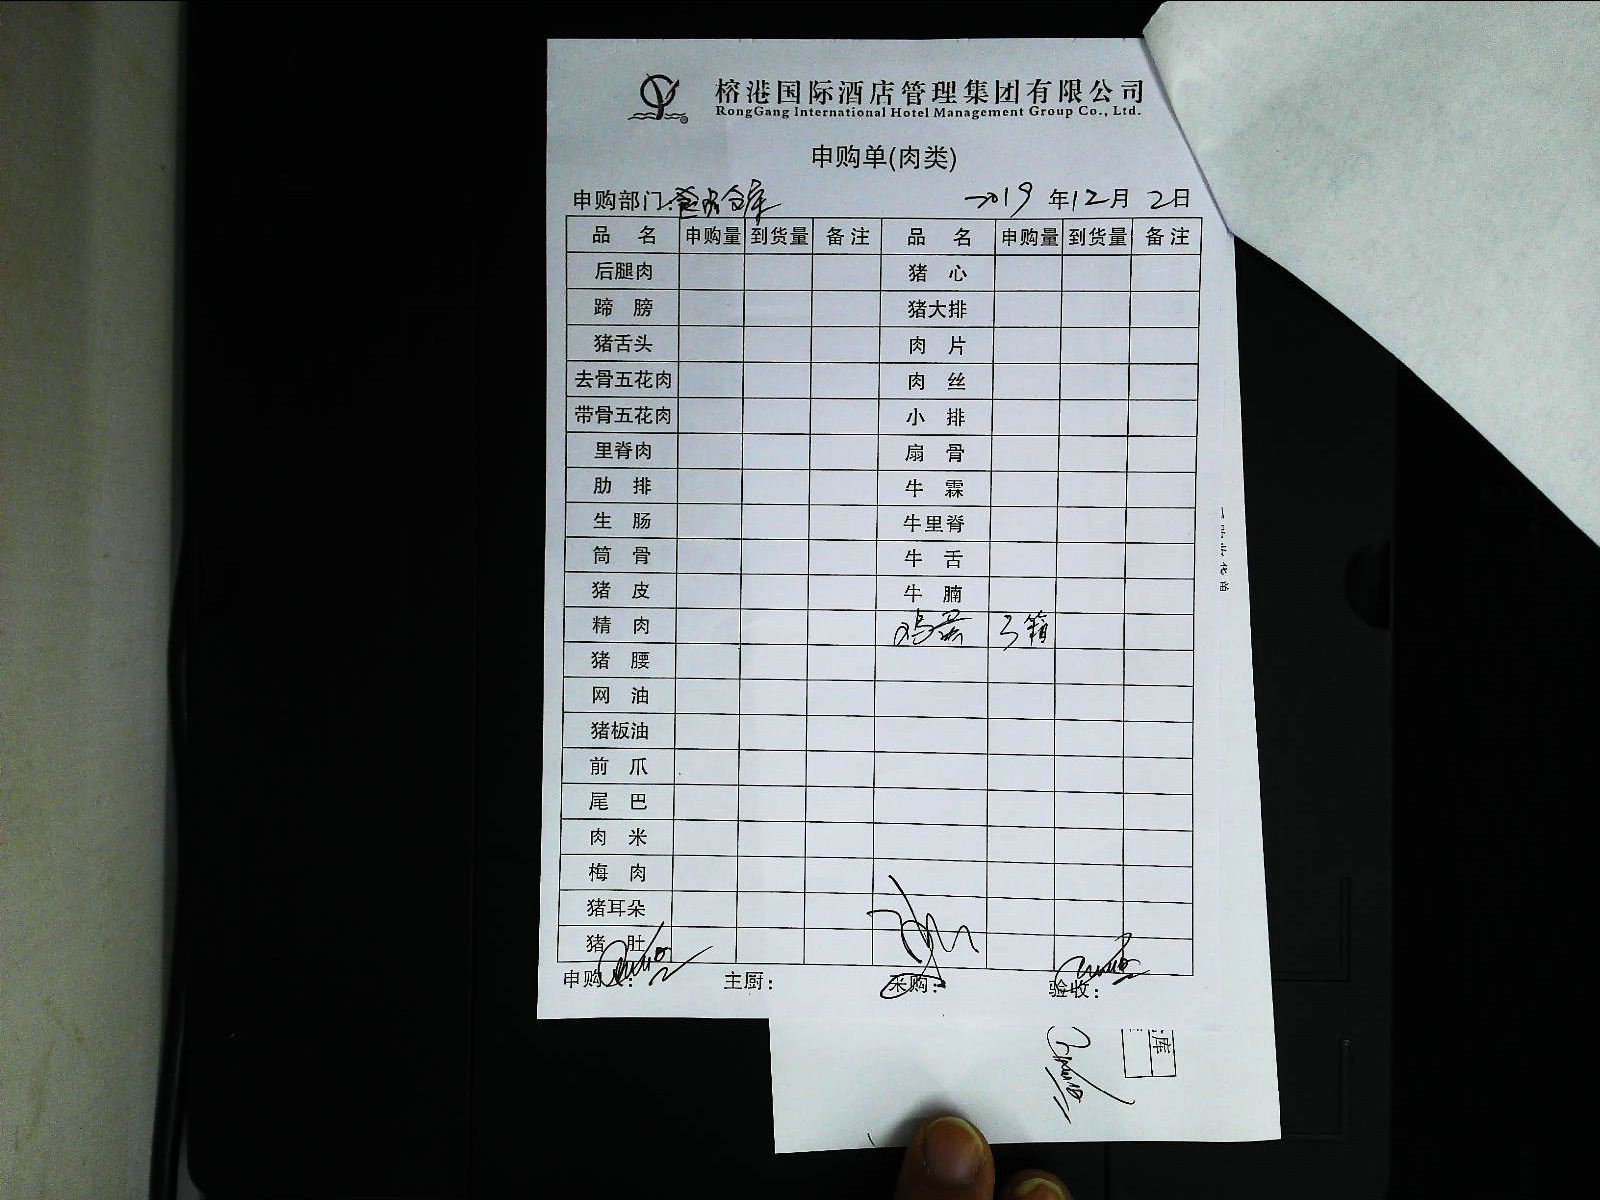 榕港国际酒店管理集团有限公司
RongGang International Hotel Management Group Co., Ltd.
申购单(肉类)
申购部门: 仓库 2019 年 12 月 2 日
品 名 申购量 到货量 备 注 品 名 申购量 到货量 备 注
后腿肉 猪 心
蹄 膀 猪大排
猪舌头 肉 片
去骨五花肉 肉 丝
带骨五花肉 小 排
里脊肉 扇 骨
肋 排 牛 霖
生 肠 牛里脊
筒 骨 牛 舌
猪 皮 牛 腩
精 肉 鸡蛋 3箱
猪 腰
网 油
猪板油
前 爪
尾 巴
肉 米
梅 肉
猪耳朵
猪 肚
申购人: 主厨: 采购: 验收:
库